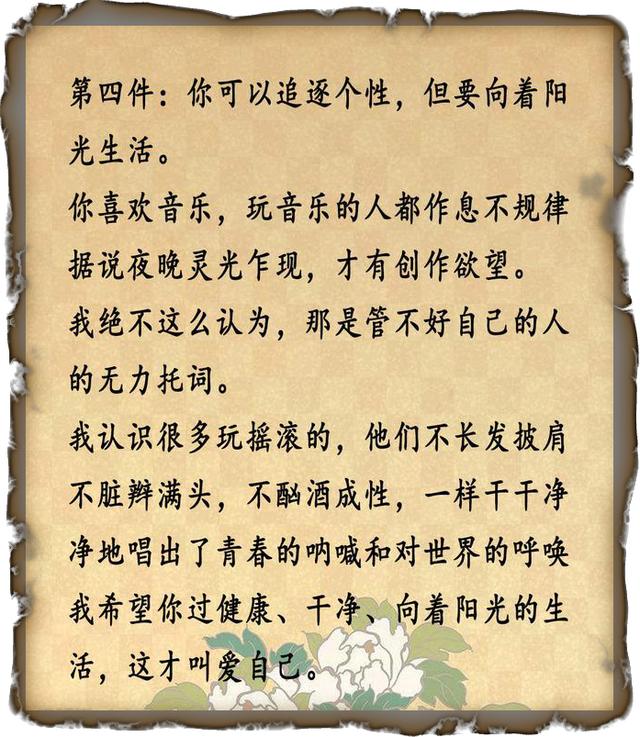 第四件：你可以追逐个性，但要向着阳
光生活。
你喜欢音乐，玩音乐的人都作息不规律
据说夜晚灵光乍现，才有创作欲望。
我绝不这么认为，那是管不好自己的人
的无力托词。
我认识很多玩摇滚的，他们不长发披肩
不脏辫满头，不酗酒成性，一样干干净
净地唱出了青春的呐喊和对世界的呼唤
我希望你过健康、干净、向着阳光的生
活，这才叫爱自己。